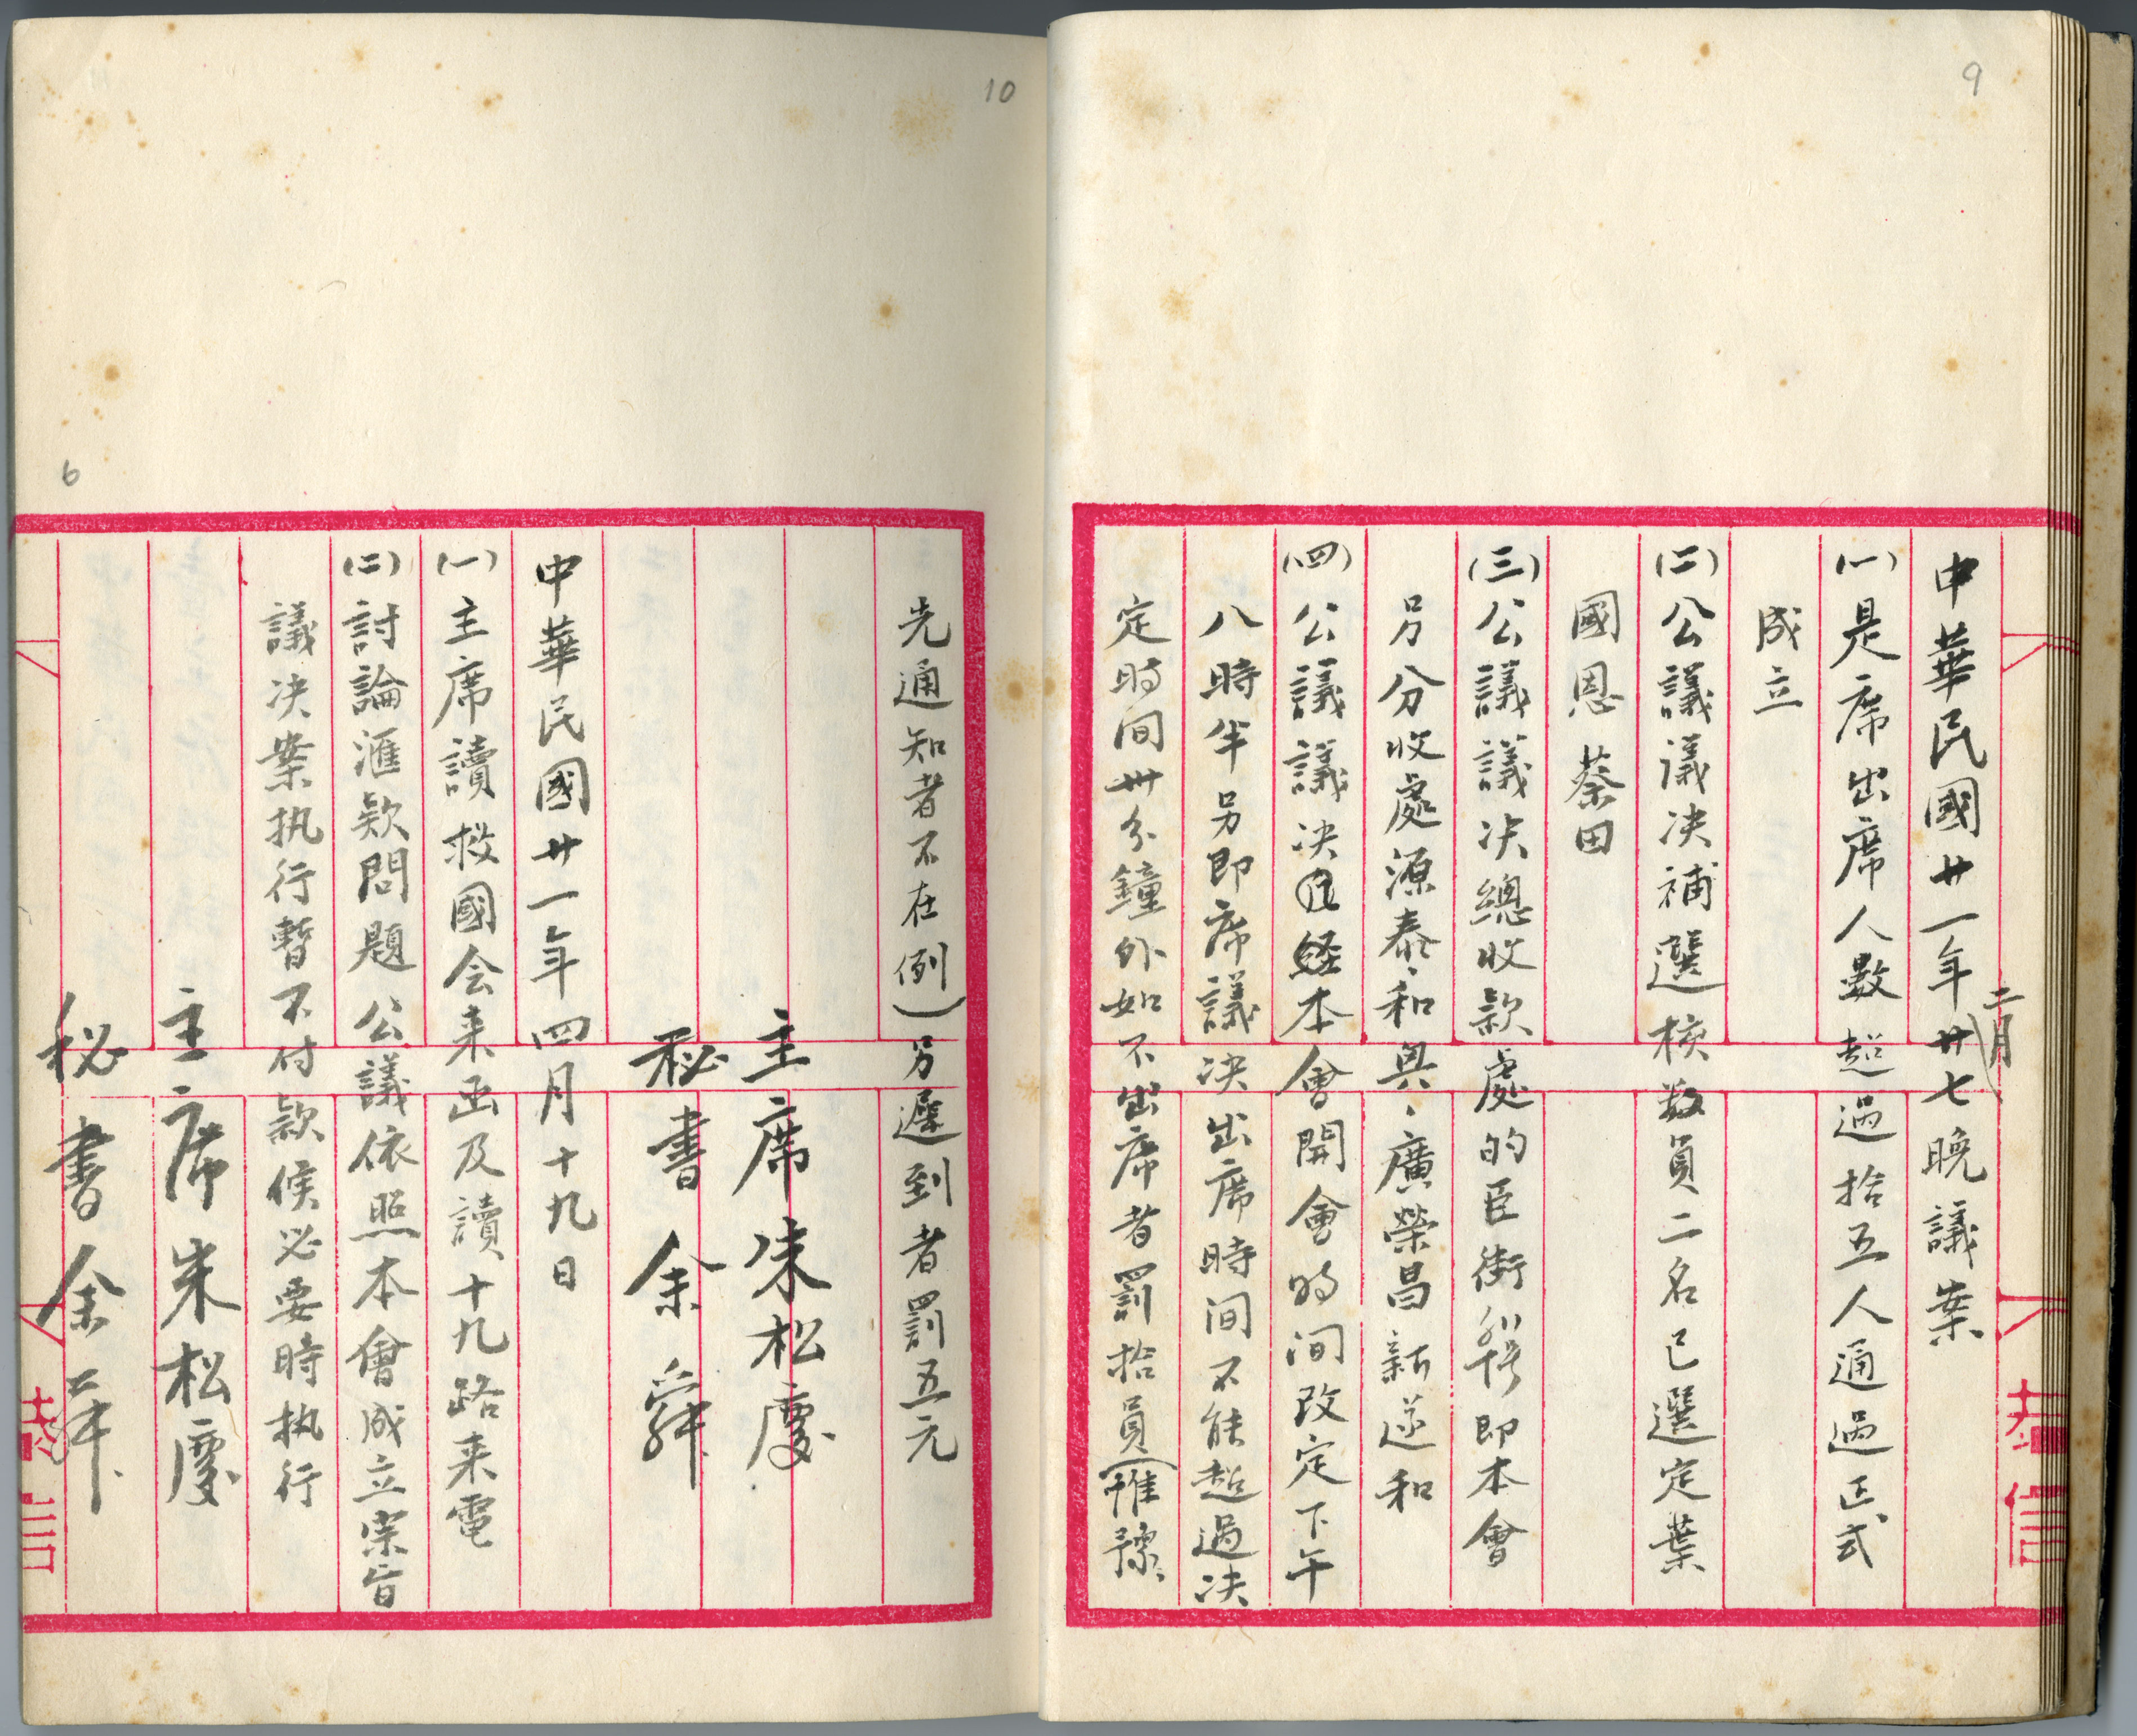 9
中華民國廿一年二月廿七晚議案
(一)是席出席人數超過拾五人通過正式
成立
(二)公議議决補選核数員二名已選定葉
國恩 蔡田
(三)公議議决總收款處的臣街 即本會
另分收處源泰、和興、廣榮昌新遂和
(四)公議議决 经本會開會时间改定下午
八時半另即席議决出席時间不能超過决
定时间卅分鐘外如不出席者罰拾員(惟豫
10
先通知者不在例)另遲到者罰五元
主席朱松慶
秘書余舜
中華民國廿一年四月十九日
(一)主席讀救國会来函及讀十九路来電
(二)討論滙款問題公議依照本會成立宗旨
議决案执行暫不付款候必要時执行
主席朱松慶
秘書余舜
6